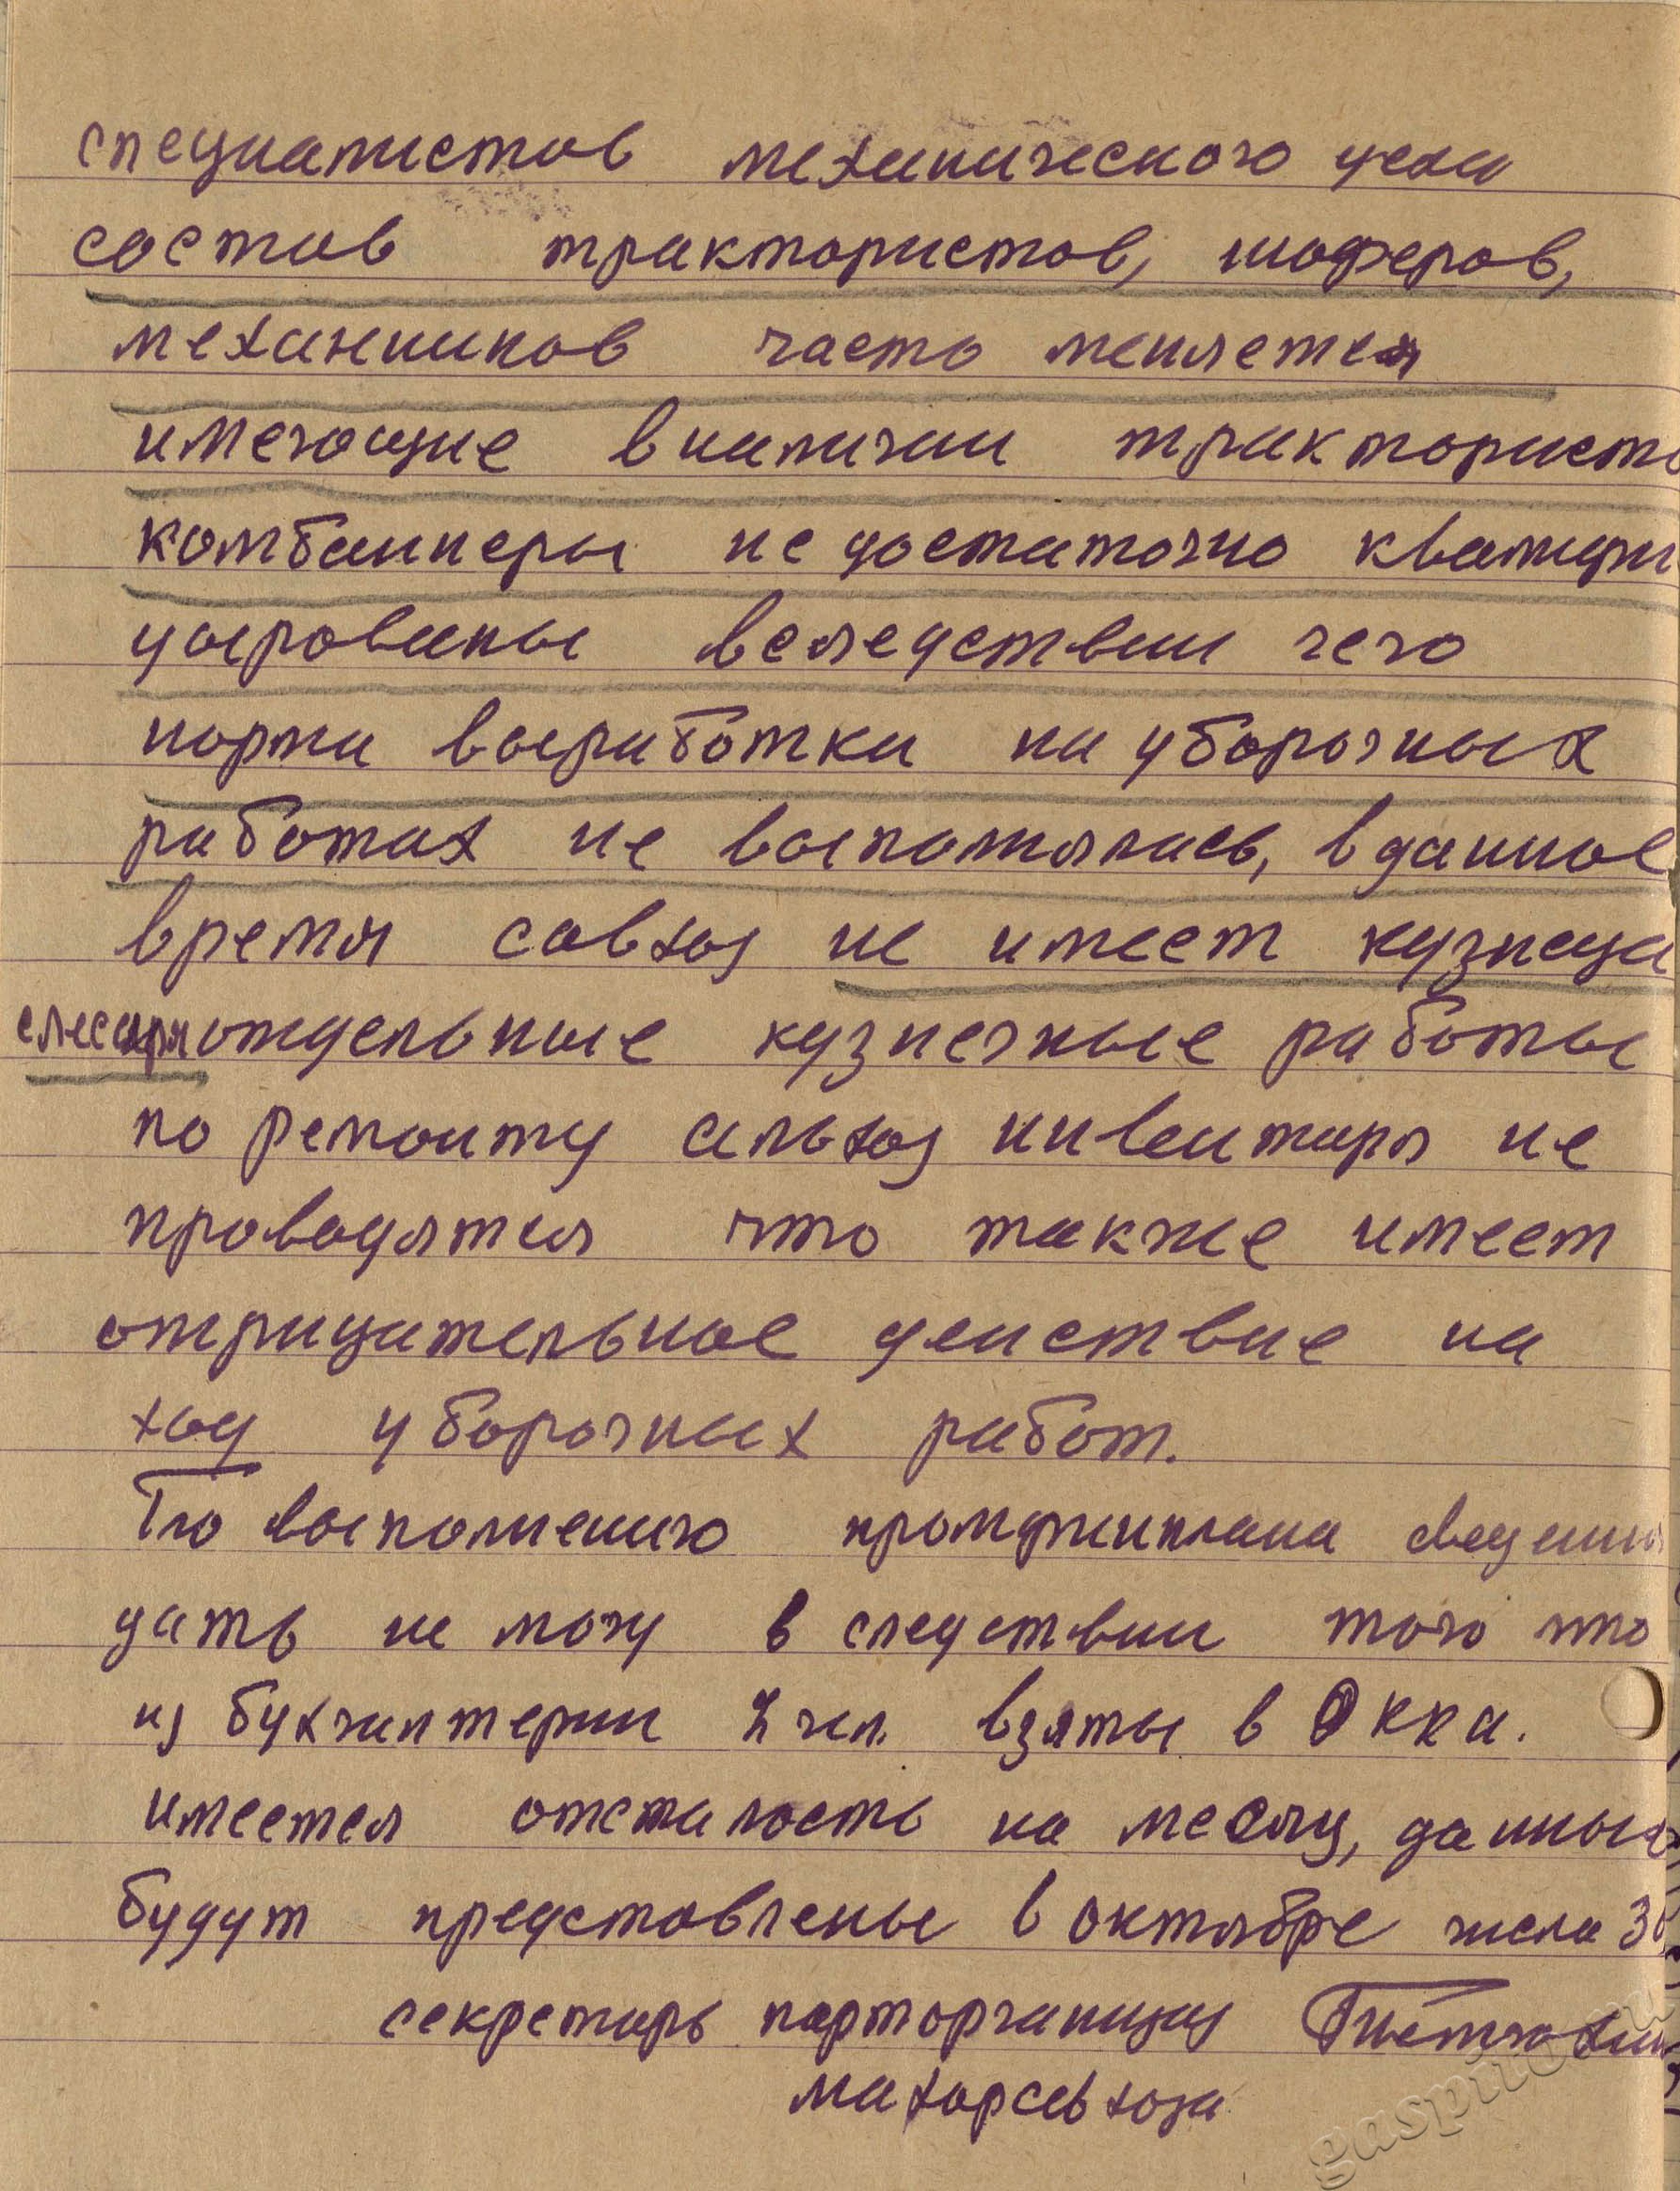 специалистов механического цеха
состав трактористов, шоферов,
механников часто меняется
имеющие в наличии трактористы
комбаинеры не достаточно квалифи
цырованы вследствии чего
норма выработки на уборочных
работах не выполнялась, в данное
время совхоз не имеет кузнеца
слесаря отдельные кузнечные работы
по ремонту сельхоз инвентаря не
проводятся что также имеет
отрицательное действие на
ход уборочных работ.
По выполнению промфинплана сведения
дать не могу в следствии того что
из бухгалтерии 2 чел. взяты в РККА.
имеется отсталость на месяц, данные
будут представлены в октябре числа 30
секретарь парторганизац
махорсовхоза
gaspito.ru